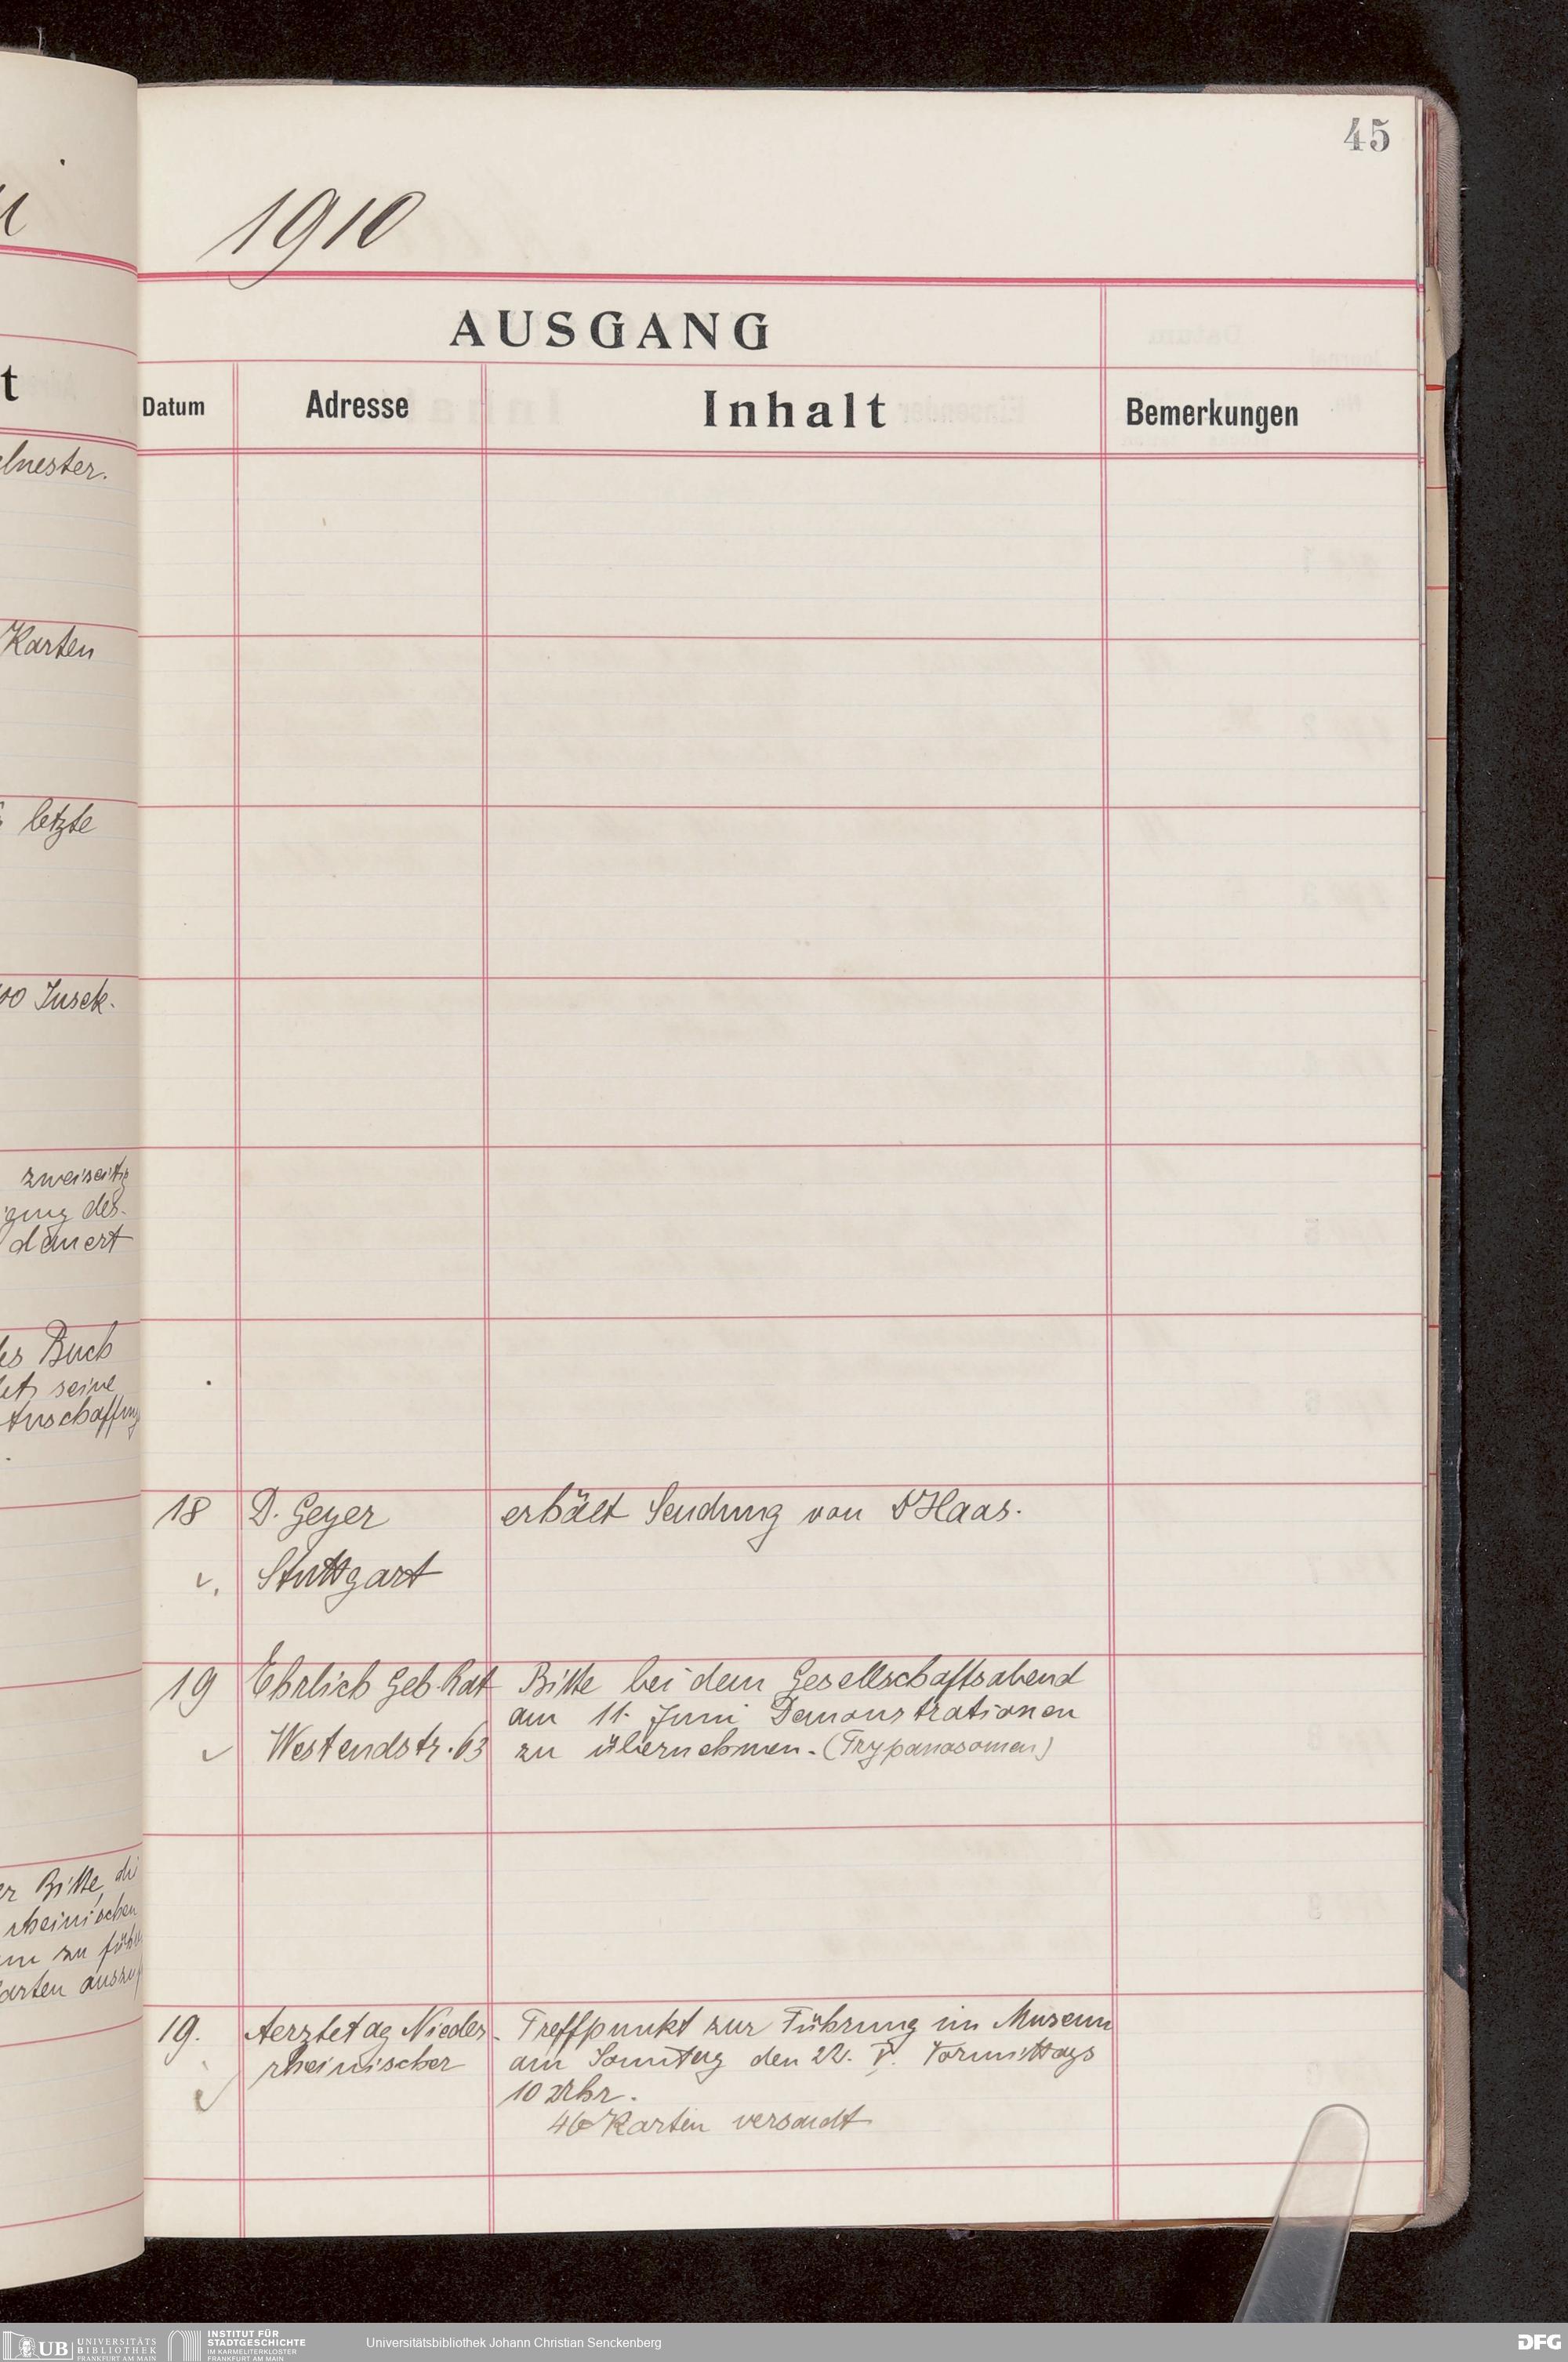 45
1910
AUSGANG
t
Datum
Adresse
Inhalt
Bemerkungen
Karten
letzte
Insek-
zweiseitig
des-
dauert
Buch
seine
Anschaffung
18
D. Geyer
erhält Sendung von Dr Haas.
Stuttgart
19
Ehrlich Geh. Rat
Bitte bei dem Gesellschaftsabend
am 11. Juni Demonstrationen
Westendstr. 63
zu übernehmen. (Trypanosomen)
Bitte, die
rheinischen
zu
19.
Aerztetag Nieder-
rheinischer
Treffpunkt zur Führung im Museum
am Sonntag den 22. V. Vormittags
10 Uhr.
46 Karten versandt
UB
UNIVERSITÄTS
BIBLIOTHEK
FRANKFURT AM MAIN
INSTITUT FÜR
STADTGESCHICHTE
IM KARMELITERKLOSTER
FRANKFURT AM MAIN
Universitätsbibliothek Johann Christian Senckenberg
DFG